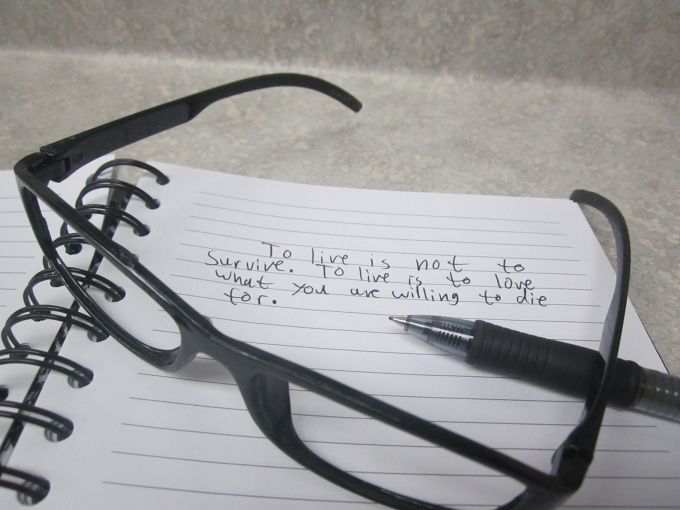 To live is not to
survive. To live is to love
what you are willing to die
for.